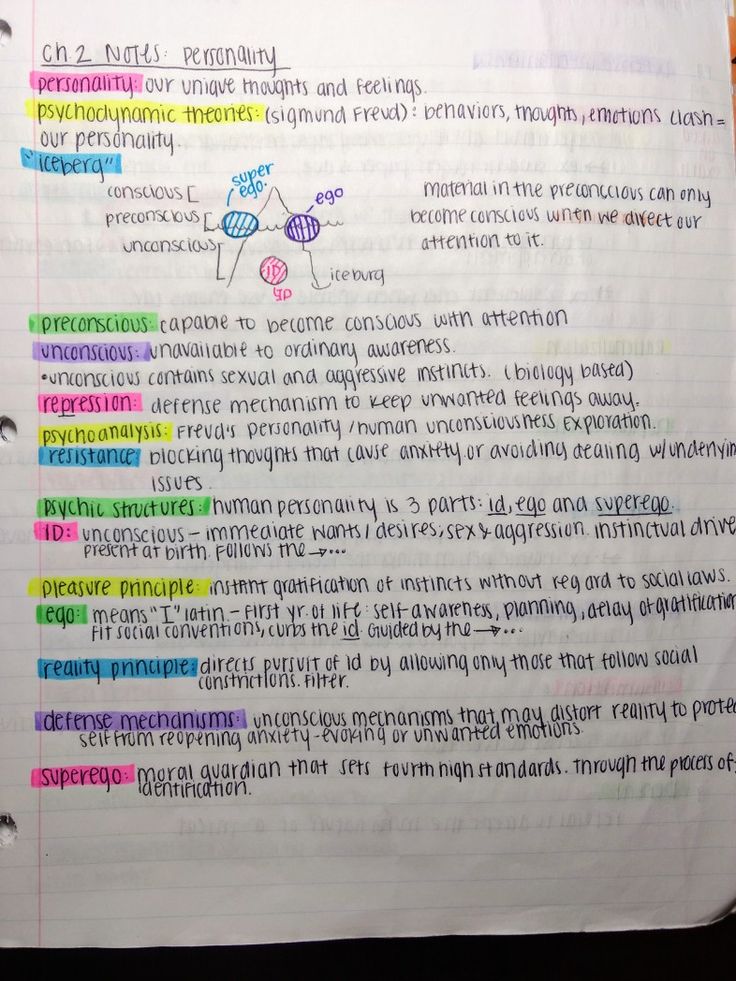 Ch. 2 Notes: Personality
personality: our unique thoughts and feelings.
psychodynamic theories: (Sigmund Freud): behaviors, thoughts, emotions clash =
our personality.
"iceberg"
super
ego.
ego
conscious [
preconscious [
unconscious [
ID
ID
iceburg
material in the preconccious can only
become conscious when we direct our
attention to it.
preconscious: capable to become conscious with attention
unconscious: unavailable to ordinary awareness.
•unconscious contains sexual and aggressive instincts. (biology based)
repression: defense mechanism to keep unwanted feelings away.
psychoanalysis: Freud's personality/human unconsciousness exploration.
resistance: blocking thoughts that cause anxiety or avoiding dealing w/underlyin
issues.
psychic structures: human personality is 3 parts: id, ego and superego.
ID: unconscious - immediate wants/desires; sex & aggression. instinctual drive
present at birth. Follows the →...
pleasure principle: instant gratification of instincts without regard to social laws.
ego: means "I" latin. - first yr. of life: self-awareness, planning, delay of gratification
fit social conventions, curbs the id. Guided by the →...
reality principle: directs pursuit of id by allowing only those that follow social
constrictions. Filter.
defense mechanisms: unconscious mechanisms that may distort reality to prote
self from reopening anxiety-evoking or unwanted emotions.
superego: moral guardian that sets fourth high standards. Through the process of
identification.